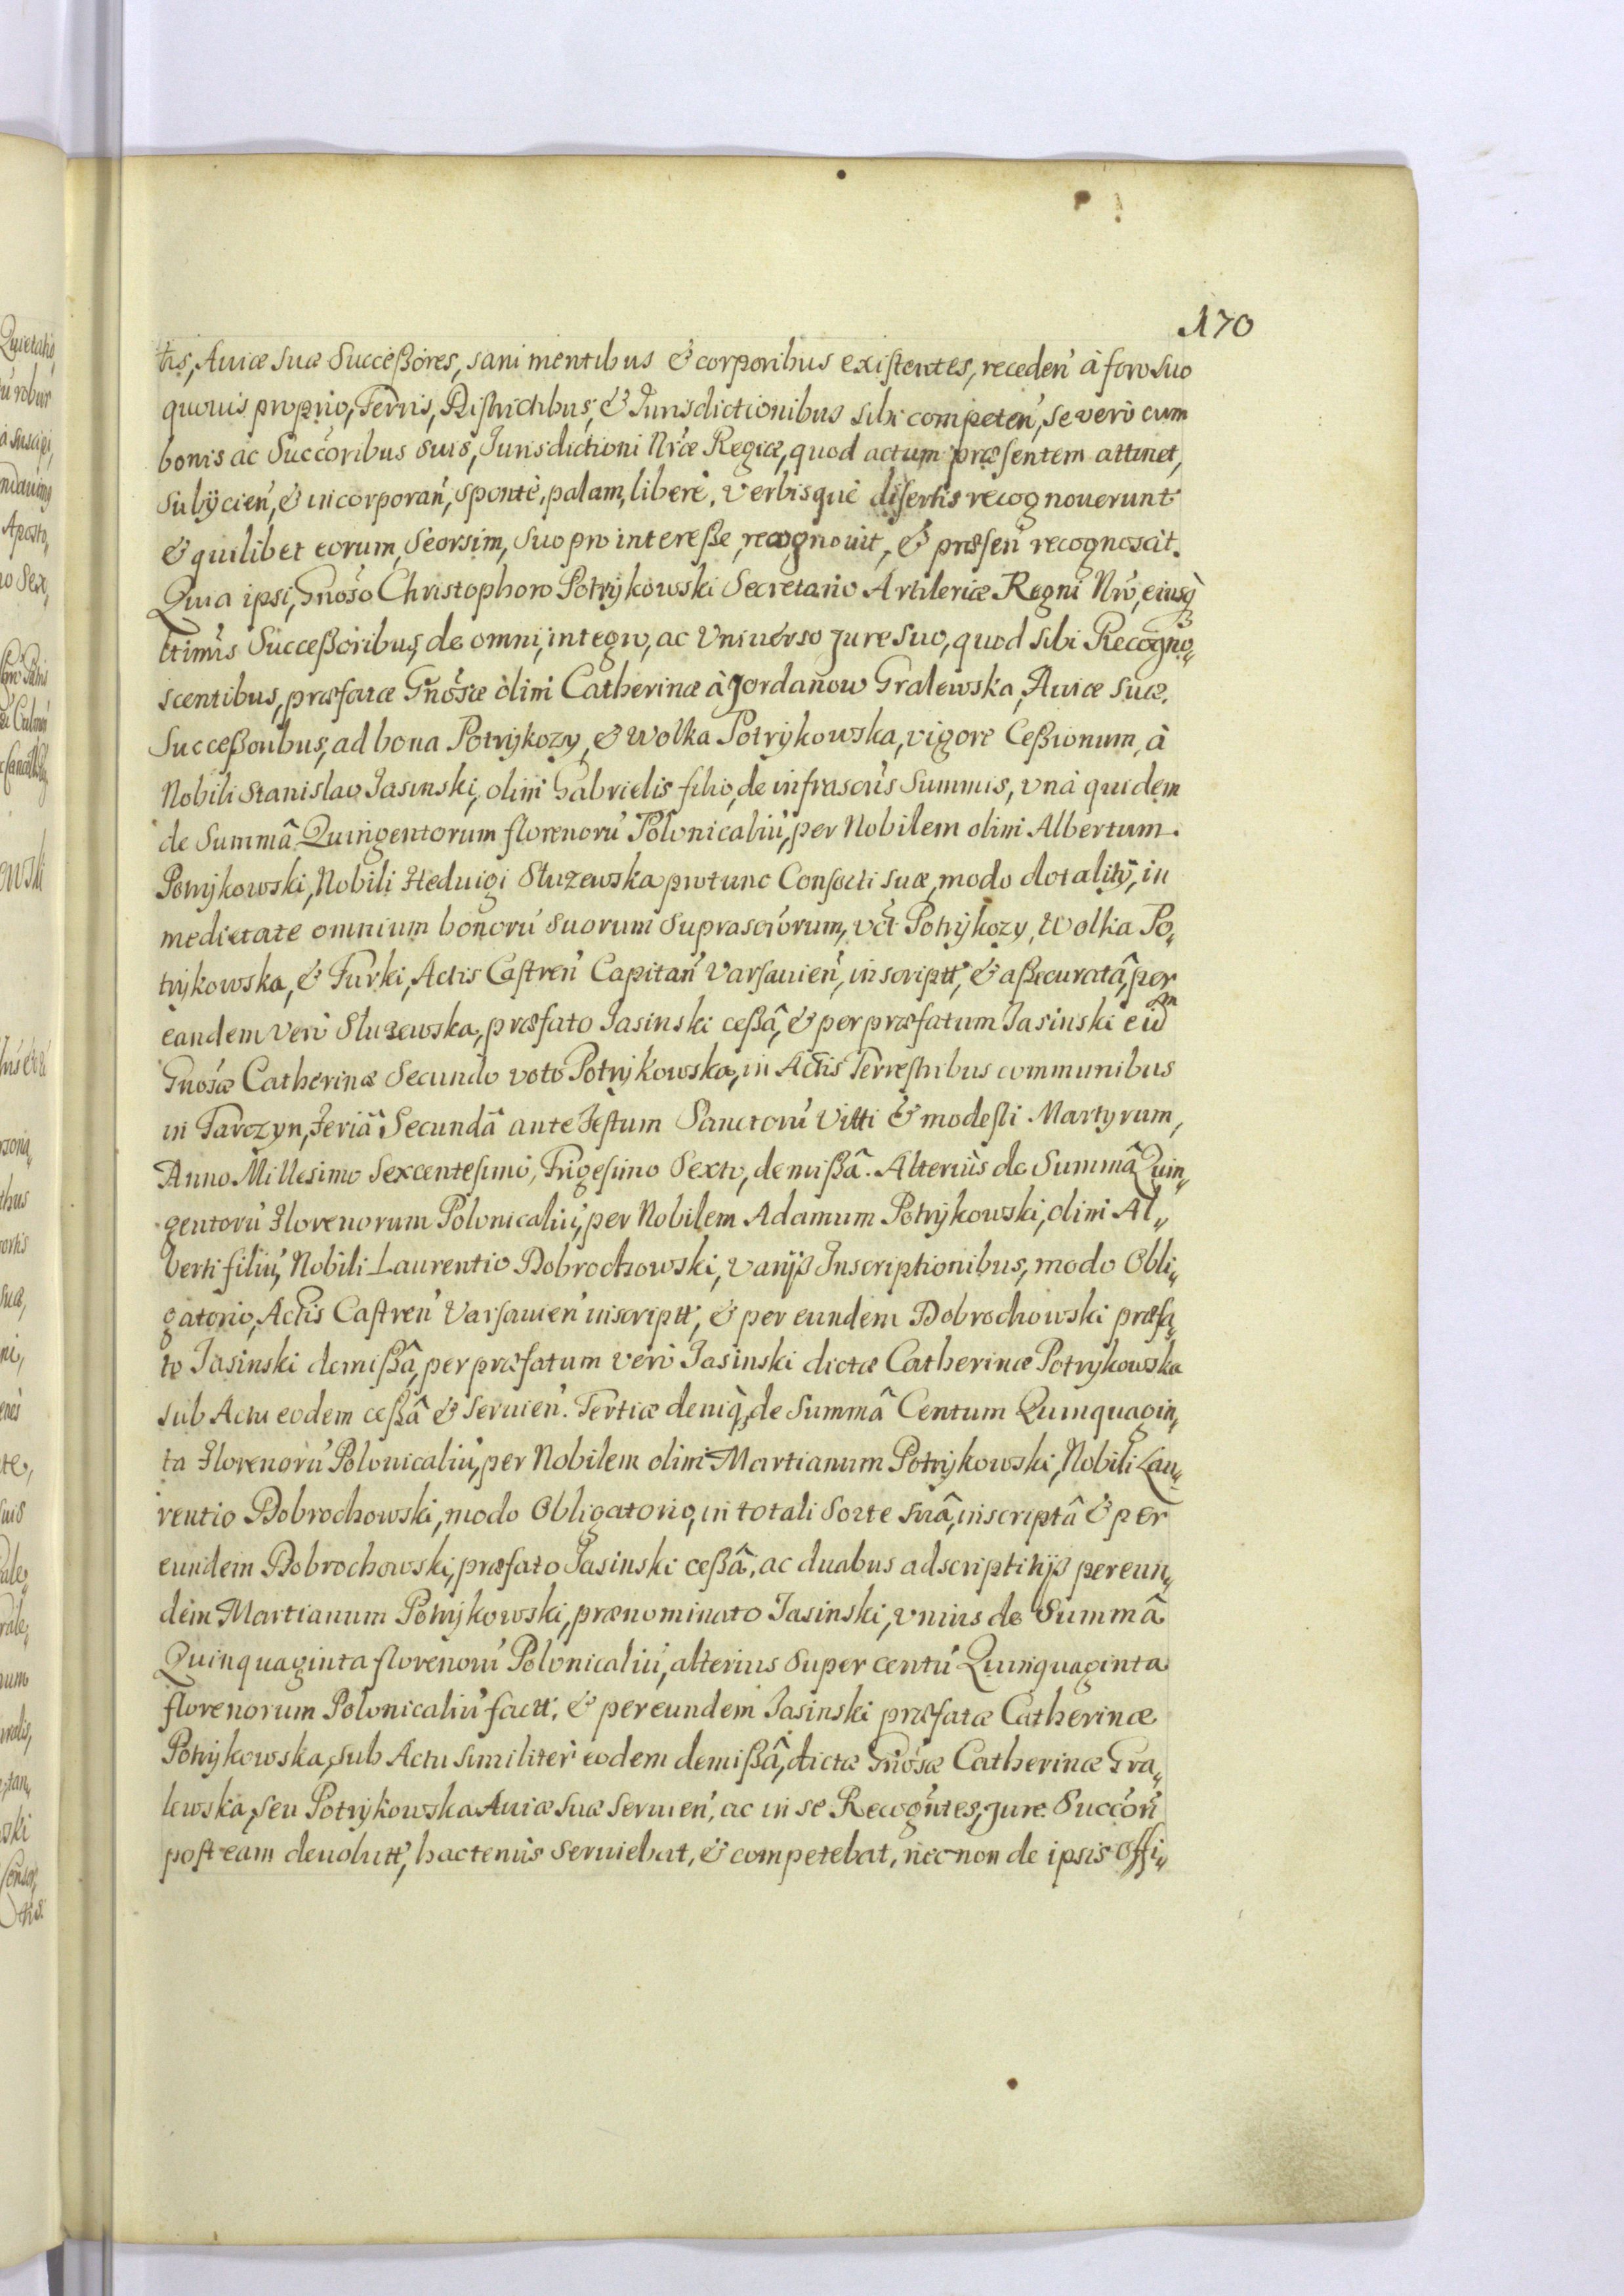 170
tris, Auiæ suæ Successores, sani mentibus & corporibus existentes, receden̄ à foro suo
quouis proprio, Terris, Districtibus, & Iurisdictionibus sibi competen̄, se verò cum
bonis ac Succōribus suis, Iurisdictioni Nrāe Regiæ, quod actum præsentem attinet,
subÿcien̄, & incorporan̄, spontè, palam, liberè, verbisquè disertis recognouerunt
& quilibet eorum, Seorsim, suo pro interesse, recognouit, & præsen̄ recognoscit.
Quia ipsi, Gnōso Christophoro Potrÿkowski Secretario Artileriæ Regni Nrō, eiusq̀
ltimis Successoribus, de omni, integro, ac Vniuerso jure suo, quod sibi Recogno„
scentibus, præfatæ Gnōsæ olim Catherinæ à Jordanow Gralewska, Auiæ suæ.
Successoribus, ad bona Potrÿkozy, & Wolka Potrÿkowska, vigore Cessionum, à
Nobili Stanislao Jasinski, olim Gabrielis filio, de infrascr̄is Summis, vnà quidem
de Summâ Quingentorum florenorū Polonicaliū, per Nobilem olim Albertum
Potrÿkowski, Nobili Heduigi Służewska protunc Consorti suæ, modo dotalitÿ, in
medietate omnium bonorū suorum suprascr̄orum, vc̄t Potrÿkozy, Wolka Po„
trÿkowska, & Turki, Actis Castren̄ Capitan̄ Varsauien̄, inscriptt, & assecuratâ, per
eandem verò Służewska, præfato Jasinski cessâ, & per præfatum Jasinski eidm
Gnōsæ Catherinæ Secundo voto Potrÿkowska, in Actis Terrestribus communibus
in Tarczyn, feriâ Secundâ ante Festum Sanctorū Vitti & modesti Martyrum,
Anno Millesimo Sexcentesimo, Trigesimo Sexto, demissâ. Alteriùs de Summâ Quin„
gentorū Florenorum Polonicaliū, per Nobilem Adamum Potrÿkowski, olim Al„
berti filiū, Nobili Laurentio Dobrochowski, varijs Inscriptionibus, modo Obli„
gatorio, Actis Castren̄ Varsauien̄ inscriptt, & per eundem Dobrochowski præfa„
to Jasinski demissâ, per præfatum verò Jasinski dictæ Catherinæ Potrykowska
sub Actu eodem cessâ & Seruien̄. Tertiæ deniq̀, de Summâ Centum Quinquagin„
ta Florenorū Polonicaliū, per Nobilem olim Martianum Potrÿkowski, Nobili Lau„
rentio Dobrochowski, modo Obligatorio, in totali Sorte suâ, inscriptâ & per
eundem Dobrochowski, præfato Jasinski cessâ, ac duabus adscriptitijs per eun„
dem Martianum Potrÿkowski, prænominato Jasinski, vnius de Summâ
Quinquaginta florenorū Polonicaliū, alterius super centū Quinquaginta
florenorum Polonicaliū factt, & per eundem Jasinski præfatæ Catherinæ
Potrÿkowska, sub Actu similiter eodem demissâ, dictæ Gnōsæ Catherinæ Gra„
lewska, seu Potrÿkowska Auiæ suæ seruien̄, ac in se Recogn̄tes, jure Succōrī
post eam deuolutt, hactenùs seruiebat, & competebat, nec non de ipsis Offi„